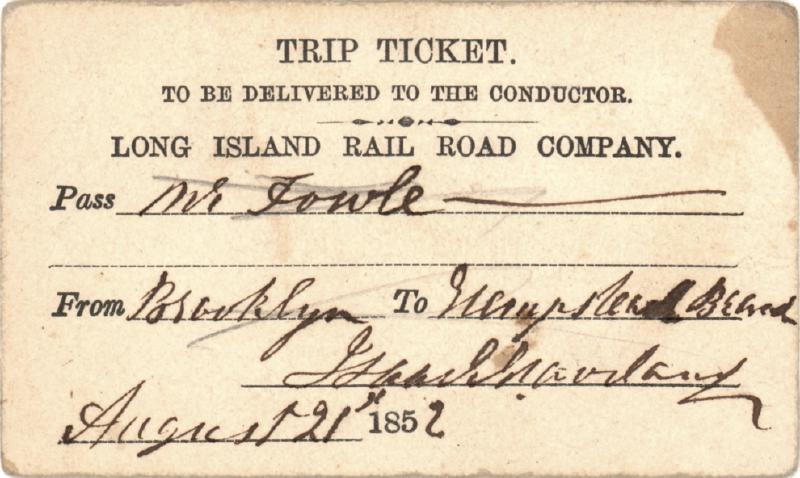 TRIP TICKET.
TO BE DELIVERED TO THE CONDUCTOR.
LONG ISLAND RAIL ROAD COMPANY.
Pass Mr Fowle
From Brooklyn To Hempstead Branch
August 21st 1852